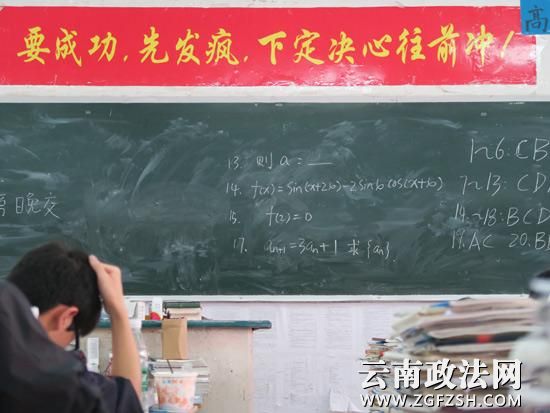 高
要成功,先发疯,下定决心往前冲!
13. 则a=__
14. f(x)=sin(x+2φ)-2sinφcos(x+φ)
15. f(2)=0
17. aₙ₊₁=3aₙ+1 求{aₙ}
晚交
1~6: CB
7~13: CD
14~18: BCD
19. AC 20. B
云南政法网
WWW.ZGFZSH.COM